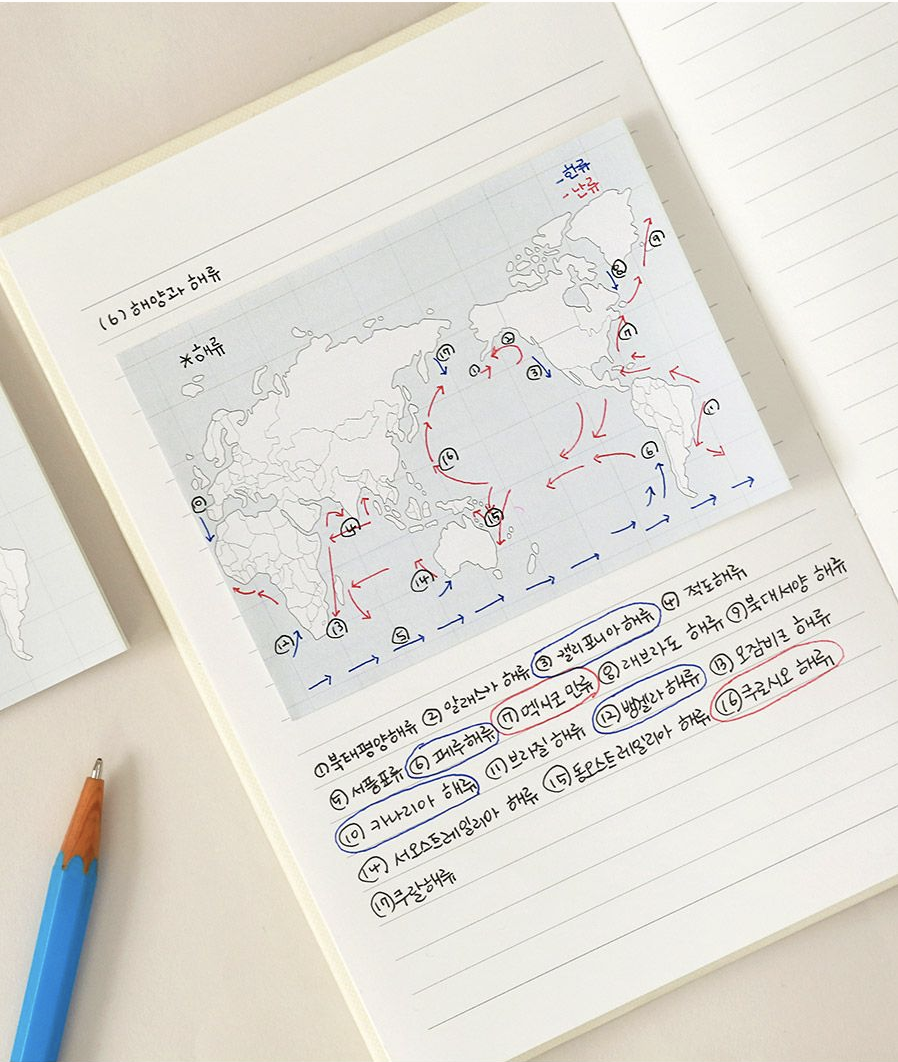 (6) 해양과 해류
-한류
-난류
*해류
⑨
⑧
⑦
⑰
②
①
③
⑪
⑯
⑥
⑩
④
⑮
⑭
⑫
⑬
⑤
①북태평양해류 ② 알래스카 해류 ③ 캘리포니아 해류 ④ 적도해류
⑤ 서풍표류 ⑥ 페루해류 ⑦ 멕시코 만류 ⑧ 래브라도 해류 ⑨ 북대서양 해류
⑩ 카나리아 해류 ⑪ 브라질 해류 ⑫ 뱅겔라 해류 ⑬ 모잠비크 해류
⑭ 서오스트레일리아 해류 ⑮ 동오스트레일리아 해류 ⑯ 쿠로시오 해류
⑰쿠릴해류